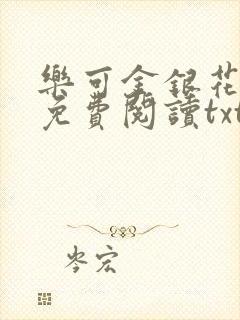 樂可金銀花
免費閱讀txt
岑宏